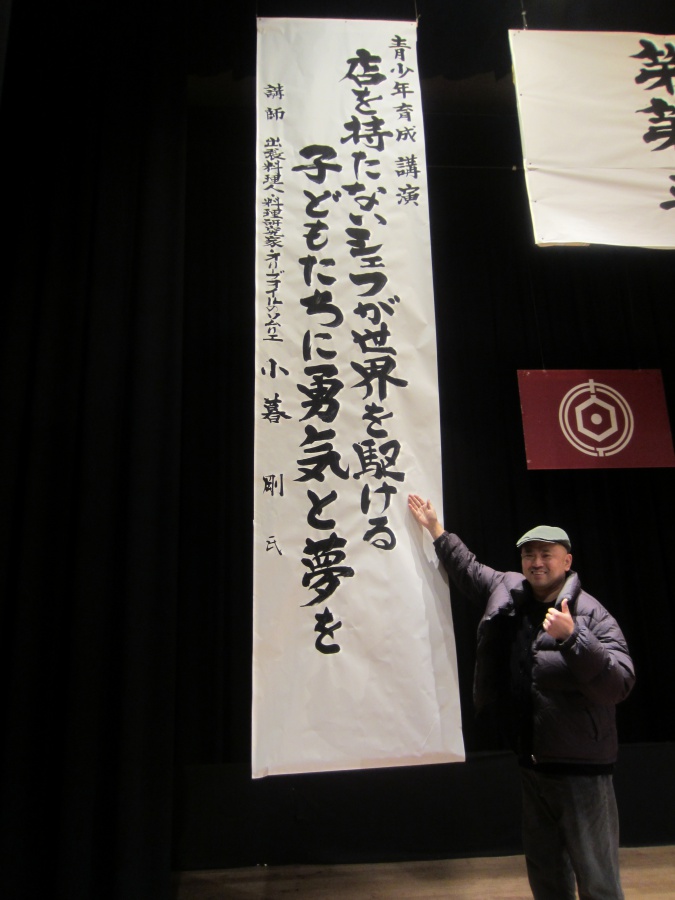 青少年育成 講演
店を持たないシェフが世界を駆ける
子どもたちに勇気と夢を
講師 出張料理人・料理研究家・オリーブオイルソムリエ 小暮 剛 氏